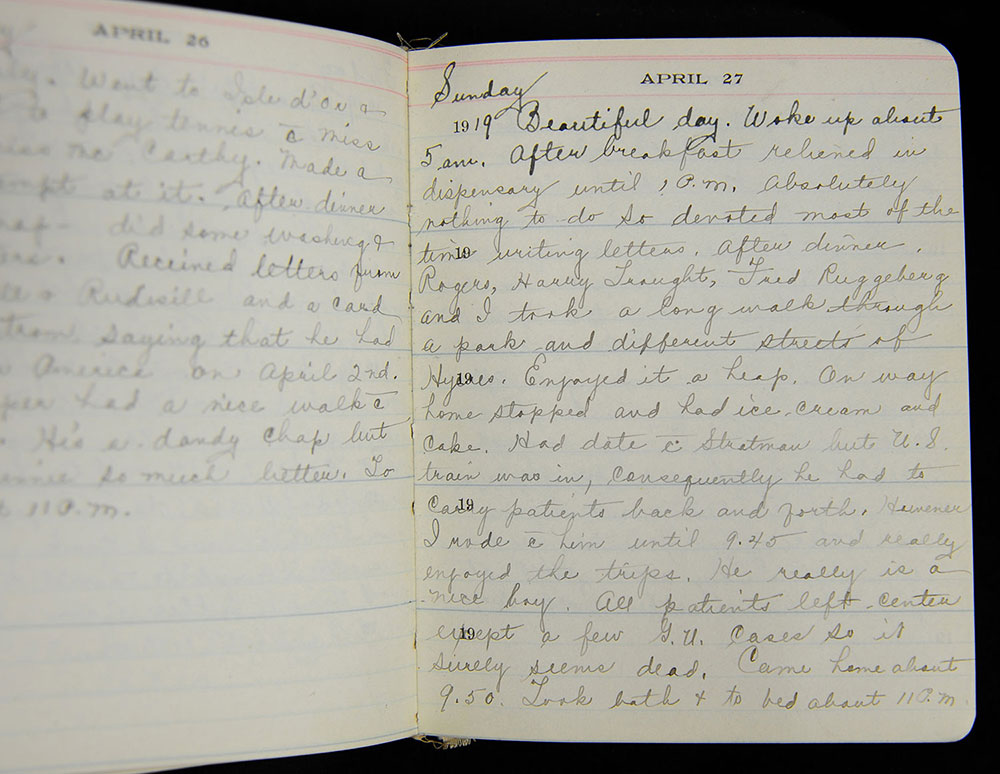 APRIL 26
Went to Isle d'Or &
to play tennis c̄ miss
miss mc Carthy. Made a
at it. After dinner
nap - did some washing &
Received letters from
Rudisill and a card
from saying that he had
America on April 2nd.
had a nice walk c̄
He's a dandy chap but
so much better. To
11 P.m.
APRIL 27
Sunday
1919 Beautiful day. Woke up about
5 am. After breakfast relieved in
dispensary until 1 P.m. Absolutely
nothing to do so devoted most of the
time writing letters. After dinner,
Rogers, Harry Traught, Fred Ruggeberg
and I took a long walk through
a park and different streets of
Hyères. Enjoyed it a heap. On way
home stopped and had ice-cream and
cake. Had date c̄ Stratman but U.S.
train was in, consequently he had to
carry patients back and forth. However
I rode c̄ him until 9.45 and really
enjoyed the trips. He really is a
nice boy. All patients left center
except a few G.U. cases so it
surely seems dead. Came home about
9.50. Took bath & to bed about 11 P.m.